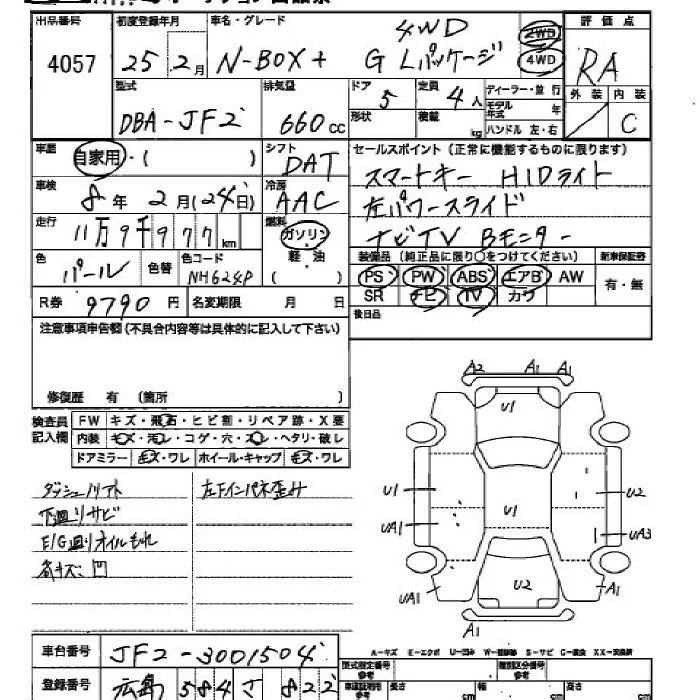 出品番号 初度登録年月 車名・グレード 評価点
4057 25 2月 N-BOX+ G Lパッケージ 4WD 2WD 4WD RA
型式 排気量 ドア 定員 ディーラー・並行 外装 内装
DBA-JF2 660cc 5 4人 モデル年式 年 C
形状 積載 kg ハンドル 左・右
車歴 自家用・( ) シフト DAT セールスポイント(正常に機能するものに限ります)
車検 8年 2月(24日) 冷房 AAC スマートキー HIDライト
左パワースライド
走行 11万9千977km 燃料 ガソリン 軽・油 ( ) ナビTV Bモニター
色 パール 色替 色コード NH624P
装備品(純正品に限り○をつけてください) 新車保証書
PS PW ABS エアB AW 有・無
SR ナビ TV カワ
R券 9790円 名変期限 月 日 後日品
注意事項申告欄(不具合内容等は具体的に記入して下さい)
修復歴 有 (箇所 )
検査員記入欄 FW キズ・飛石・ヒビ割・リペア跡・X要
内装 キズ・汚レ・コゲ・穴・スレ・ヘタリ・破レ
ドアミラー キズ・ワレ ホイール・キャップ キズ・ワレ
ダッシュリフト 左Fインパネ歪み
下廻りサビ
E/G廻りオイルもれ
各キズ凹
A2 A1 A1
U1
U1 U1 U2
UA1 UA3
UA1 U2 A1
A1
A-キズ E-エクボ U-凹み W-補修跡 S-サビ C-腐食 XX-交換済
車台番号 JF2-3001504
登録番号 広島 584 す 822
型式指定番号 類別区分番号
参考 長さ cm 幅 cm 高さ cm